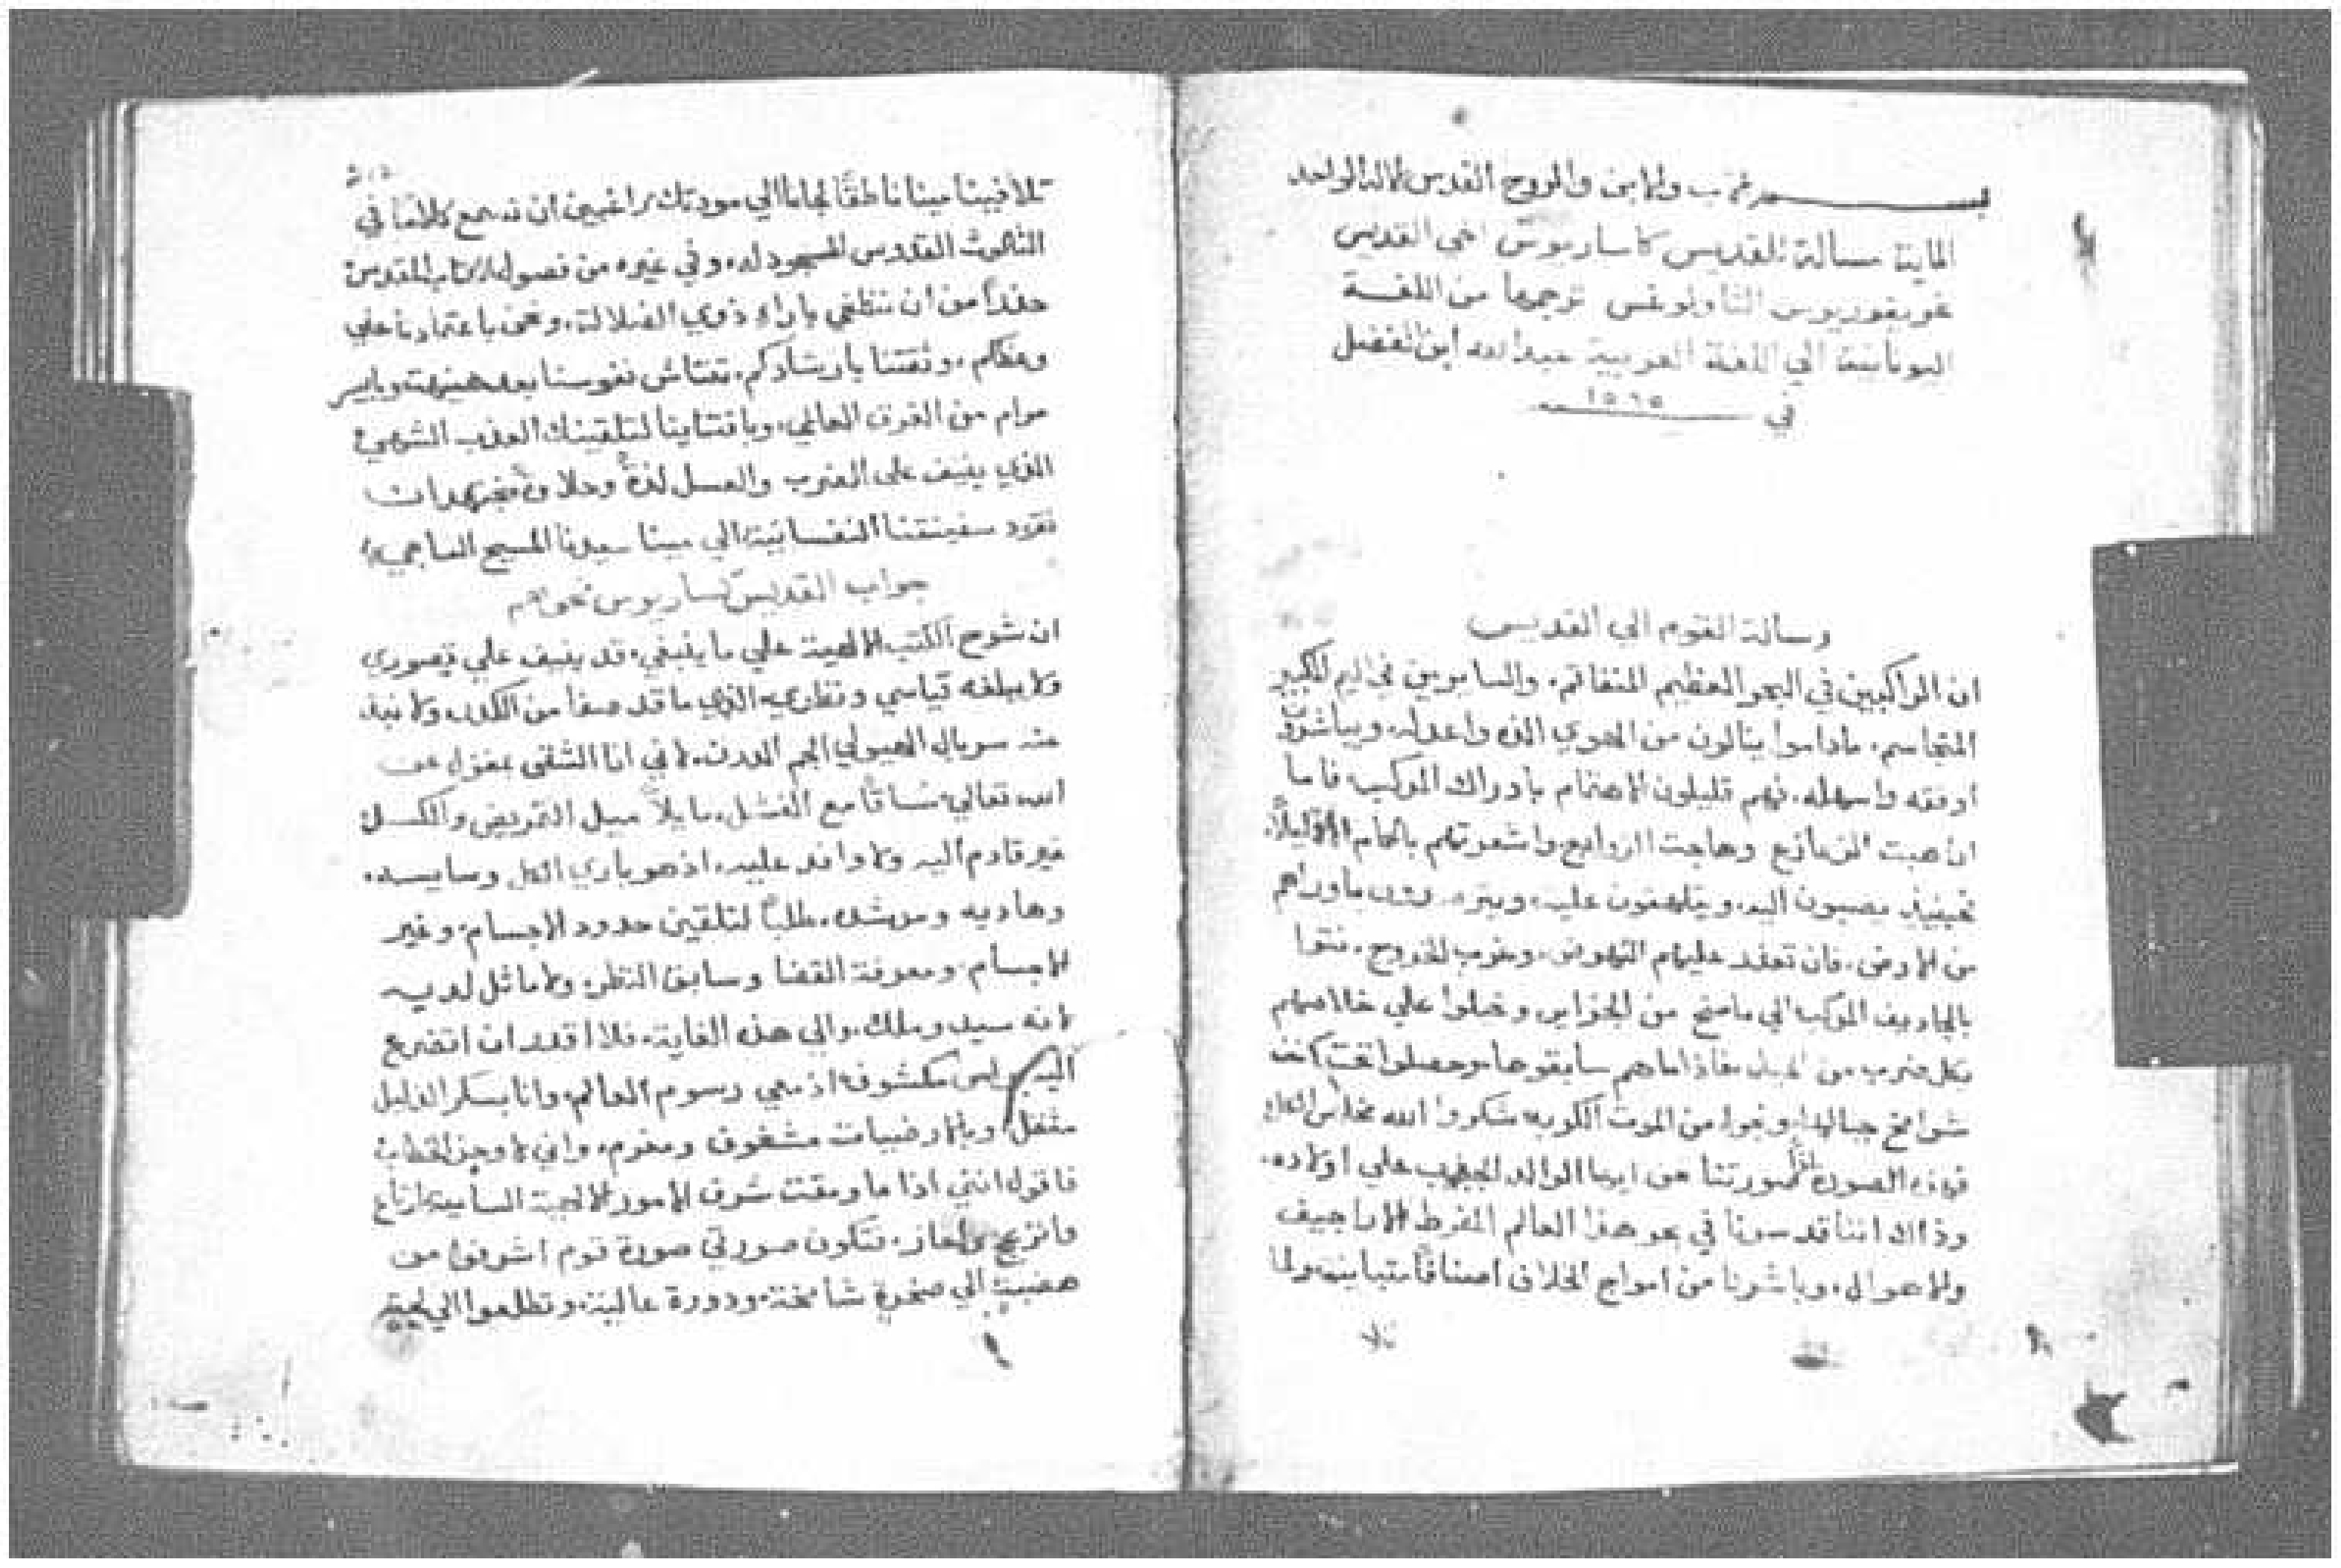 بسم الاب والابن والروح القدس الاله الواحد
الماية مسالة القديس كاساريوس اخي القديس
غريغوريوس الثاولوغس ترجمها من اللغة
اليونانية الي اللغة العربية عبد الله ابن الفضل
في
رسالة القوم الي القديس
ان الراكبين في البحر العظيم المتفاقم. والسايرين في اليم الكبير
المتجاسم. ماداموا ينالون من الهوي الذه واعدله. ويباشرون
ارفقه واسهله. فهم قليلون الاهتمام بادراك المركب. فاما
ان هبت الزعازع وهاجت الزوابع واشعرتهم بالحمام الا قليلاً.
فحينيذ يصبون اليه، ويتلهفون عليه، ما وراهم
من الارض. فان تعذر عليهم النهوض، وعزب الخروج.
بالمجاديف المركب الي ما سنح من الجزاير. وعملوا علي خلاصهم
بكل ضرب من الحيل. فاذا ما هم سابقوها. وحصلوا تحت كنف
شوامخ جبالها. ونجوا من الموت الكريه. شكروا الله مخلص الكل
فهذه الصورة صورتنا نحن ايها الوالد علي اولاده.
وذاك اننا قد سرنا في بحر هذا العالم المفرط الاراجيف
والاهوال. وباشرنا من امواج الخلاف اصنافاً متباينة ولما
تلا
تلافينا مينا ناطقًا لجانا الي مودتك راغبين ان نسمع كلامًا في
الثالوث القدوس المسجود له. وفي غيره من فصول الكتاب المقدس
حذراً من ان نطغي باراء ذوي الضلالة. ونحن باعتمادنا علي
وعظكم. وثقتنا بارشادكم. تنتاش نفوسنا بعد هنيهة وبايسر
مرام من الغرق العالمي. وباقتناينا لتلقينك العذب الشهي
الذي ينيف على الضرب والعسل لذةً وحلاوةً
نقود سفينتنا النفسانية الي مينا سيدنا المسيح الساجي
جواب القديس كساريوس نحوهم
ان شرح الكتب الالهية علي ما ينبغي. قد ينيف علي تصوري
ولا يبلغه قياسي ونظري. الذي ما قد صفا من الكدر. ولا نبذ
عنه سربال الهيولي الجم الدرن. لاني انا الشقي بمعزل عن
الله تعالي. مايلاً ميل التمريض والكسل
غير قادم اليه ولا وافد عليه. اذ هو باري الكل وسايسه.
وهاديه ومرشده. طلبًا لتلقين حدود الاجسام. وغير
الاجسام. ومعرفة القضا وسابق النظر. ولا ماثل لديه
لانه سيد وملك. والي هذه الغاية. فلا اقدر ان اتضرع
اليه براس مكشوف. اذ معي رسوم العالم. وانا بسكر الدليل
مثقل. وبالارضيات مشغوف ومغرم. واني لاوجز الخطاب
فاقول انني اذا ما رمقت شرف الامور الالهية السامية ارتاع
وانزعج وانحاز. فتكون صورتي صورة قوم اشرفوا من
هضبةٍ الي صخرةٍ شامخة. وذروة عالية. وتطلعوا الي